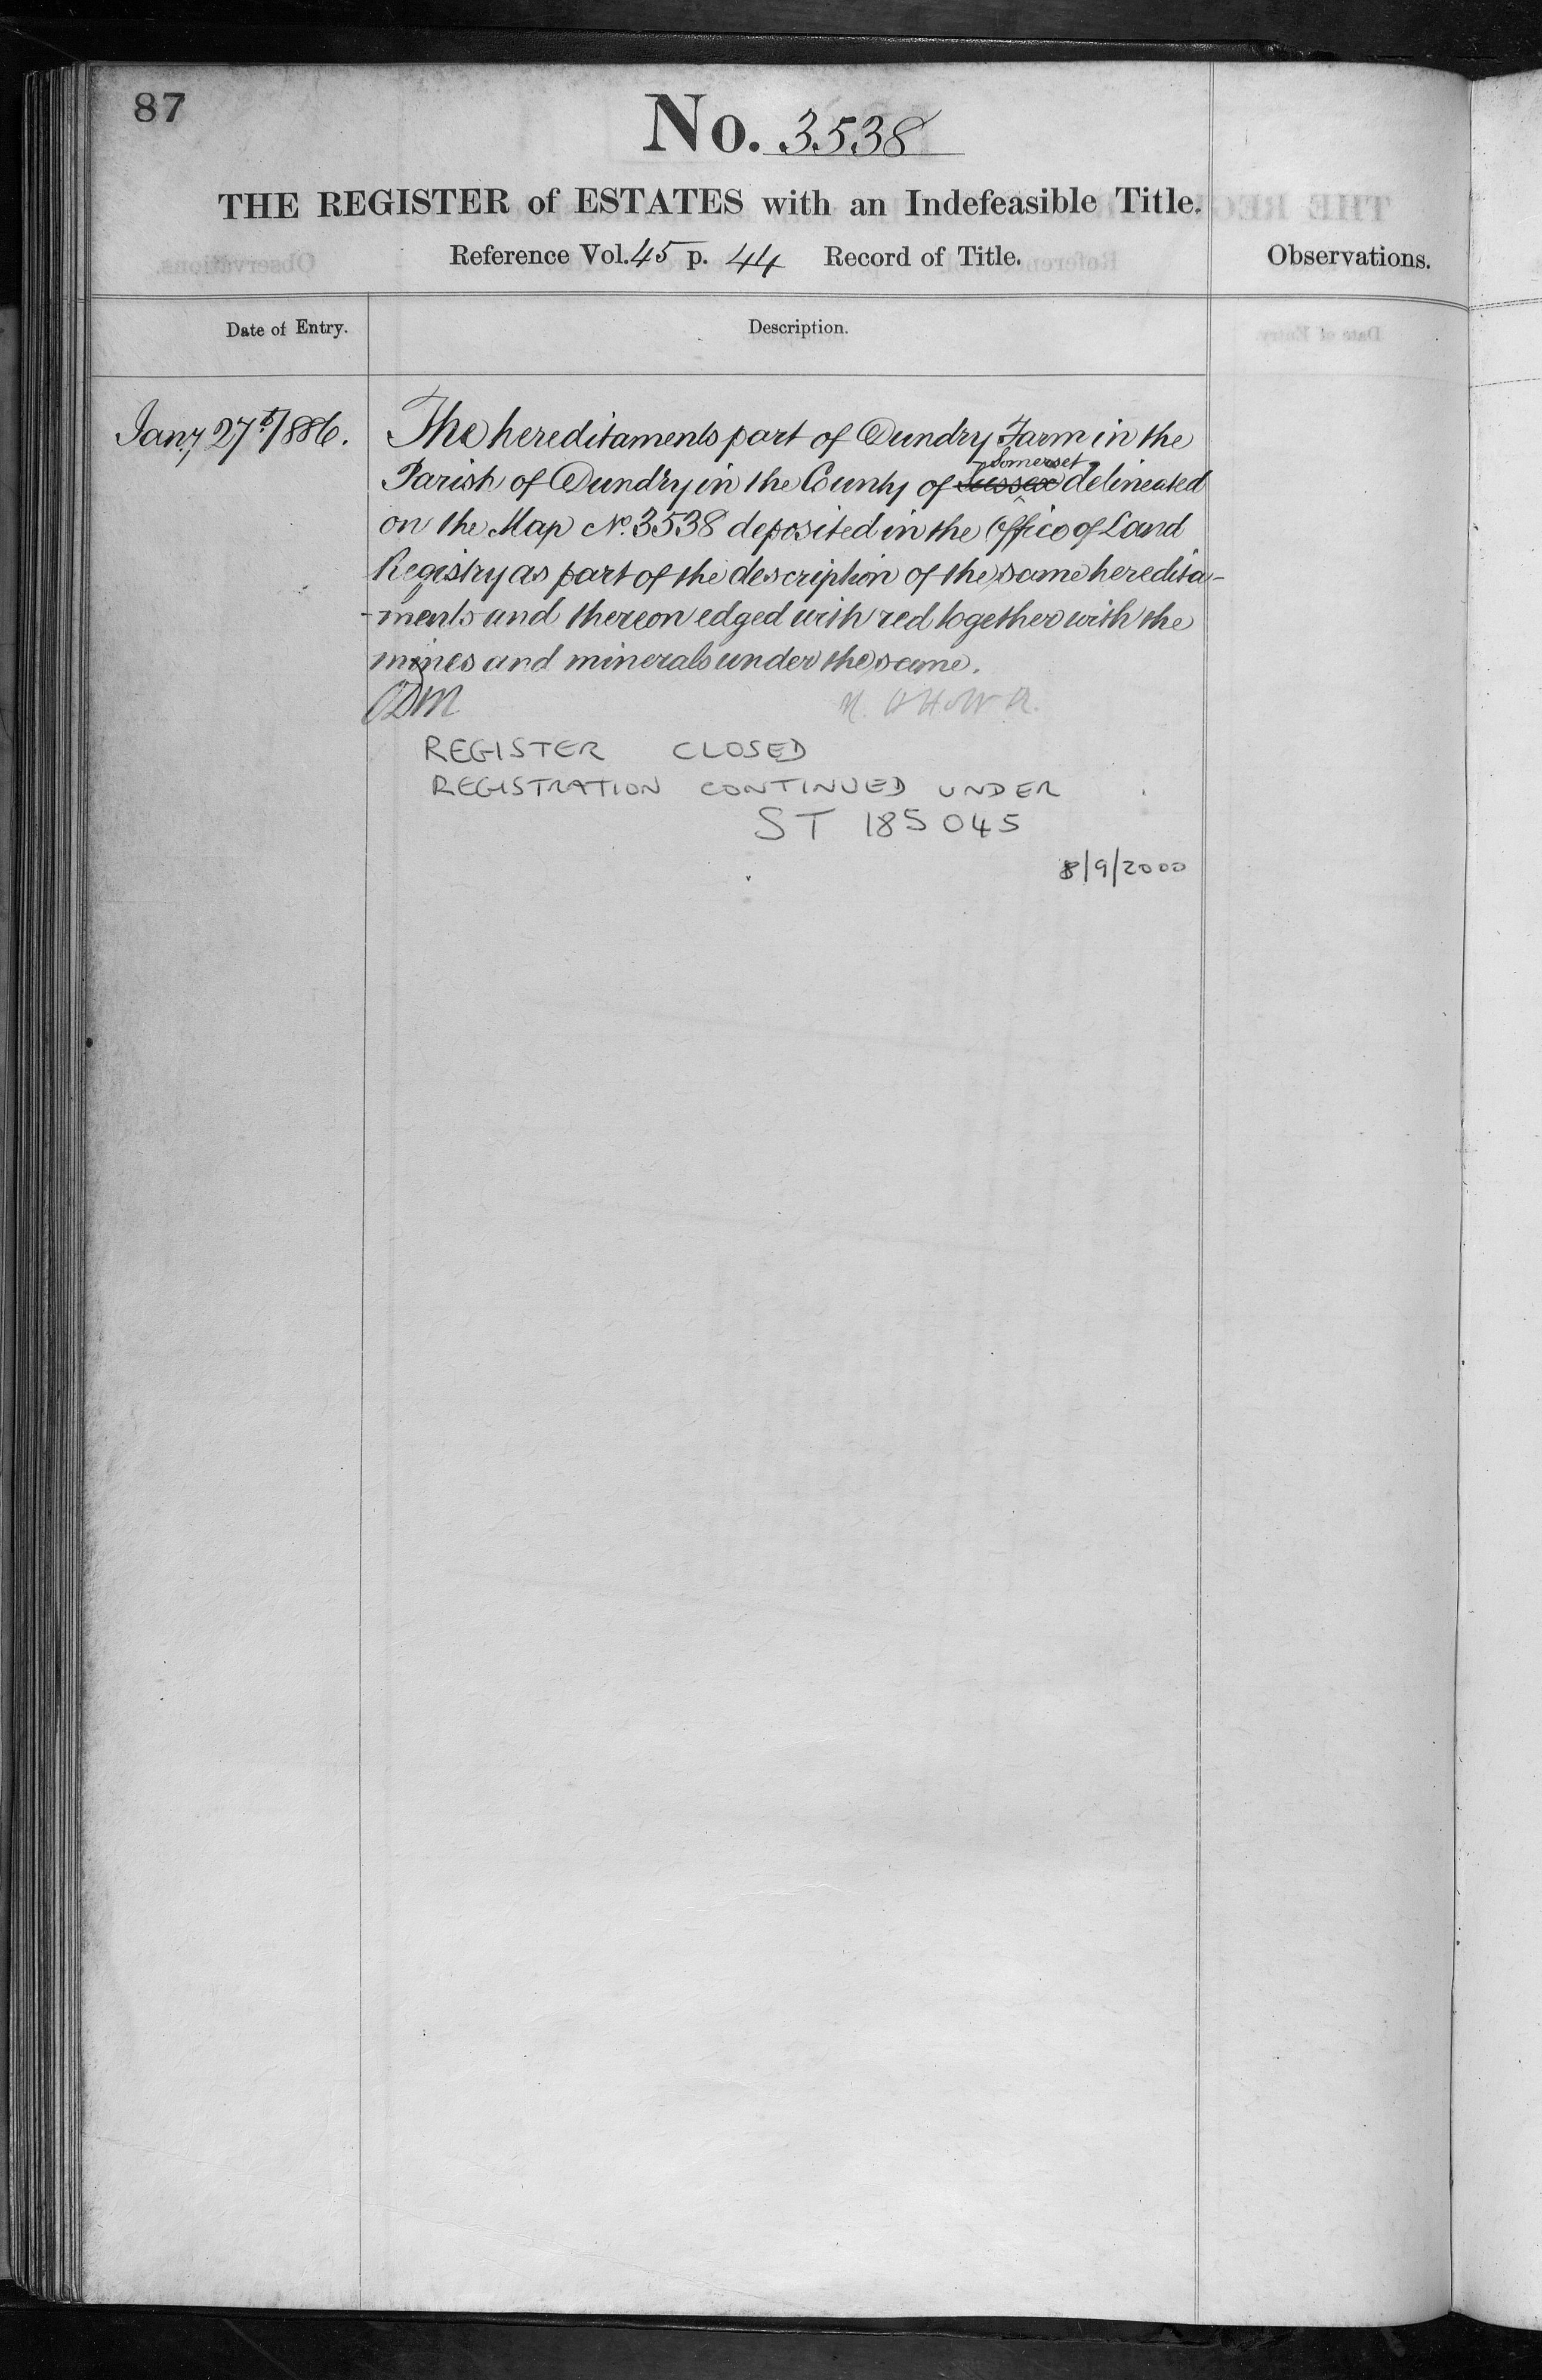 87
No. 3538
THE REGISTER of ESTATES with an Indefeasible Title.
Reference Vol. 45 p. 44 Record of Title.
Observations.
Date of Entry.
Description.
Jany. 27th 1886.
The hereditaments part of Dundry Farm in the
Somerset
Parish of Dundry in the County of Sussex delineated
on the Map No. 3538 deposited in the Office of Land
Registry as part of the description of the same heredita-
-ments and thereon edged with red together with the
mines and minerals under the same.
REGISTER CLOSED
REGISTRATION CONTINUED UNDER
ST 185045
8/9/2000